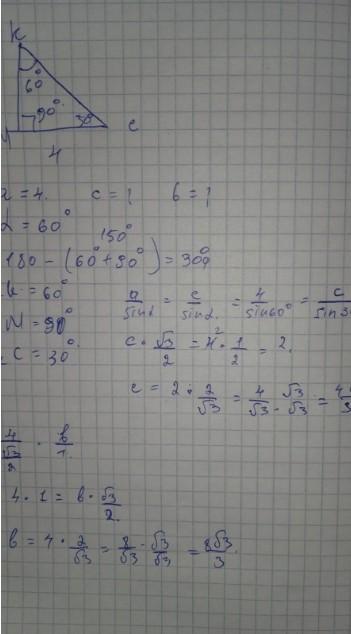 K
60°
90° 30° C
4
= 4. c = 1 b = 1
α = 60°
150°
180 - (60° + 90°) = 30°
K = 60° a/sinα = c/sinα. = 4/sin60° = c/sin3
= 90°
C = 30° c · √3/2 = 4² · 1/2 = 2.
c = 2 · 2/√3 = 4/√3 · √3/√3 = 4
4/√3/2 · b/1.
4 · 1 = b · √3/2.
b = 4 · 2/√3 = 8/√3 · √3/√3 = 8√3/3.